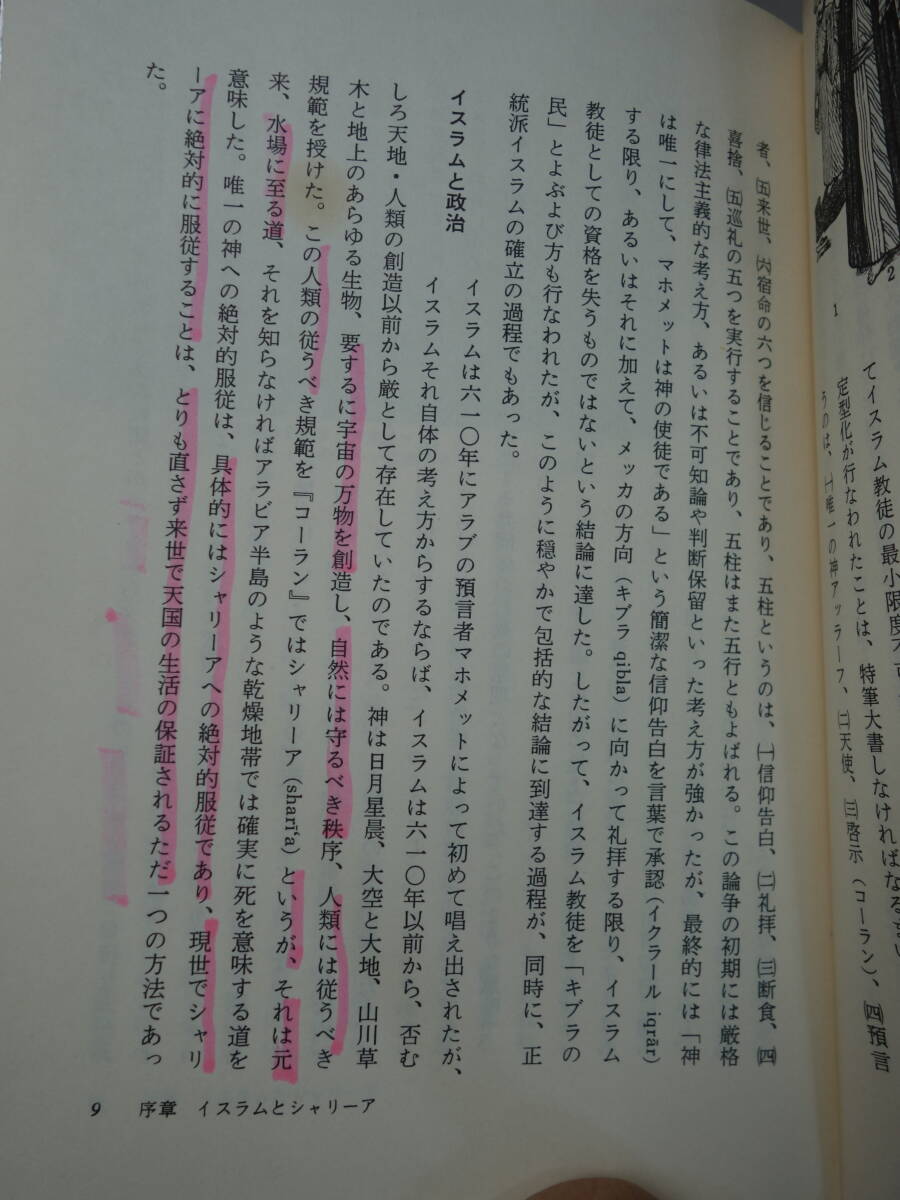 てイスラム教徒の最小限度
定型化が行なわれたことは、特筆大書しなければなる
うのは、㈠唯一の神アッラーフ、㈡天使、㈢啓示（コーラン）、㈣預言
1
2
者、㈤来世、㈥宿命の六つを信じることであり、五柱というのは、㈠信仰告白、㈡礼拝、㈢断食、㈣
喜捨、㈤巡礼の五つを実行することであり、五柱はまた五行ともよばれる。この論争の初期には厳格
な律法主義的な考え方、あるいは不可知論や判断保留といった考え方が強かったが、最終的には「神
は唯一にして、マホメットは神の使徒である」という簡潔な信仰告白を言葉で承認（イクラール iqrār）
する限り、あるいはそれに加えて、メッカの方向（キブラ qibla）に向かって礼拝する限り、イスラム
教徒としての資格を失うものではないという結論に達した。したがって、イスラム教徒を「キブラの
民」とよぶよび方も行なわれたが、このように穏やかで包括的な結論に到達する過程が、同時に、正
統派イスラムの確立の過程でもあった。
イスラムと政治
イスラムは六一〇年にアラブの預言者マホメットによって初めて唱え出されたが、
イスラムそれ自体の考え方からするならば、イスラムは六一〇年以前から、否む
しろ天地・人類の創造以前から厳として存在していたのである。神は日月星晨、大空と大地、山川草
木と地上のあらゆる生物、要するに宇宙の万物を創造し、自然には守るべき秩序、人類には従うべき
規範を授けた。この人類の従うべき規範を『コーラン』ではシャリーア（sharī‘a）というが、それは元
来、水場に至る道、それを知らなければアラビア半島のような乾燥地帯では確実に死を意味する道を
意味した。唯一の神への絶対的服従は、具体的にはシャリーアへの絶対的服従であり、現世でシャリ
ーアに絶対的に服従することは、とりも直さず来世で天国の生活の保証されるただ一つの方法であっ
た。
9 序章 イスラムとシャリーア